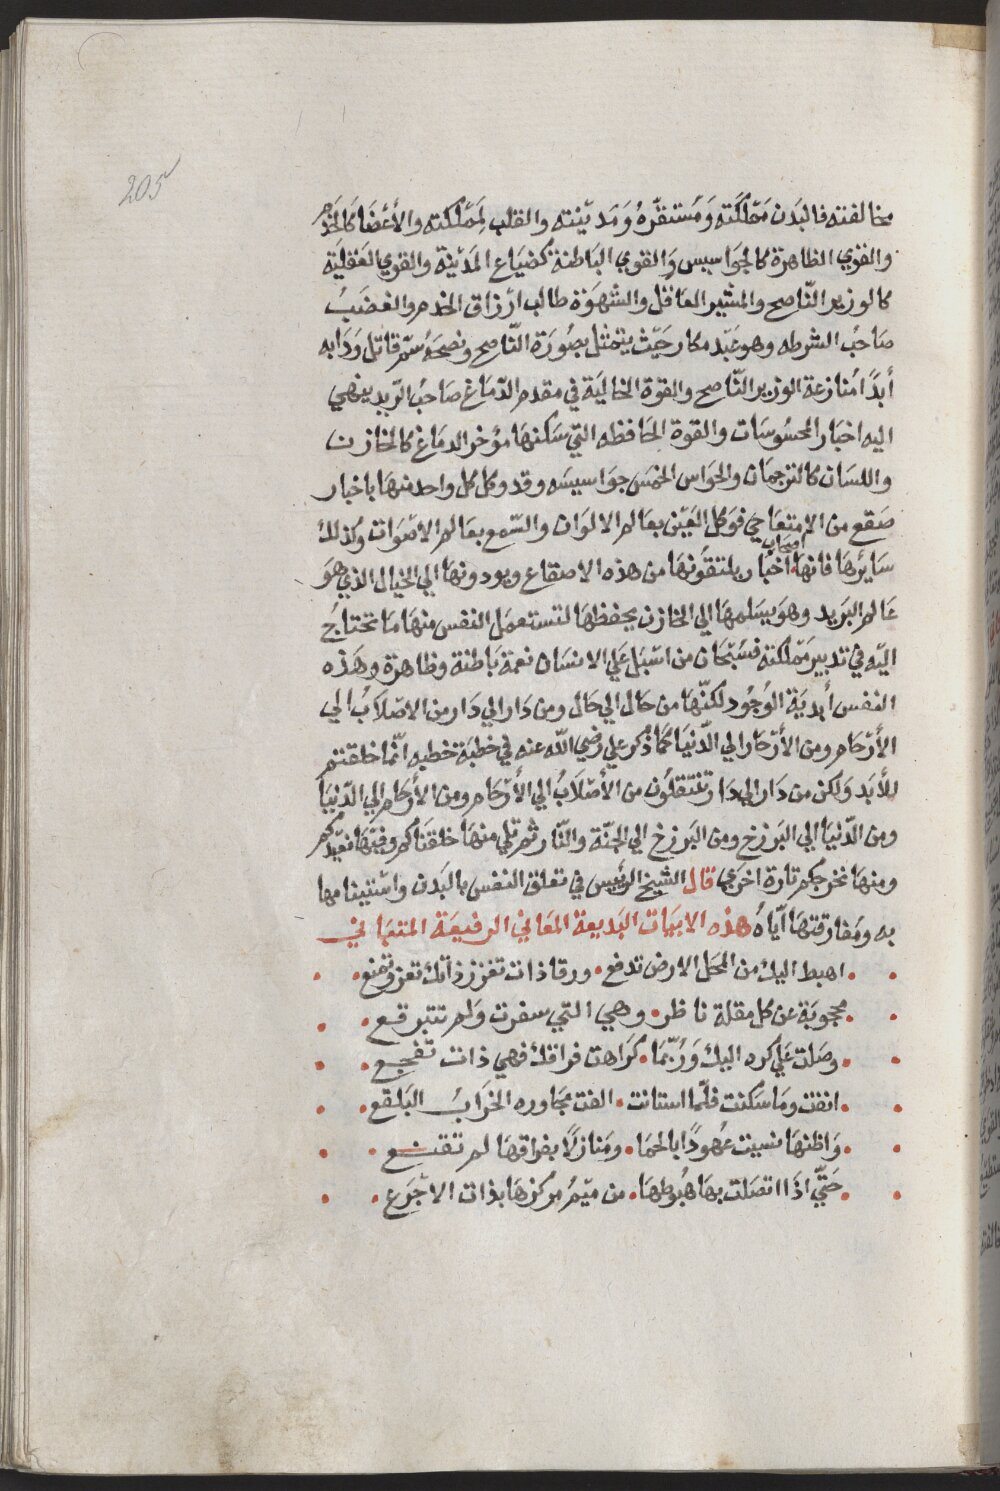 205
مخالفته فالبَدن مَمْلَكَته وَمُسْتقَرّهُ وَمَديْنته والقلب لِمَمْلكته والأعْضَا كالخدَم
والقوي الظاهرة كالجوَاسيس وَالقوي البَاطنة كضيَاع المَدْينة والقوي العَقليَة
كالوزير النّاصح والمشير العَاقل والشهوَة طالب ارْزاق الخدم والغضَبُ
صَاحبُ الشرطه وهو عَبْد مكار حَيْث يتمثل بصُورَة النّاصح ونصحَهُ سّم قاتل وَدَابه
أبدًا مُنازعة الوزير النّاصح والقوة الخاليَة في مقدم الدّماغ صَاحبُ البريد ينهي
اليه اخبَار المحسُوسَات والقوة الحَافظه التي سَكنهَا مؤخر الدمَاغ كالخازن
واللسَان كالترجمان والحَواس الخمس جوَاسيسَه وقد وكل كل واحد منهَا باخبار
صَقع من الاصقاع فوَكل العَيْن بعَالم الالوَان والسّمع بعَالم الاصْوَات وكذلك
سَايْرهَا فانهَا اصحاب أخبَار يلتقوُنهَا من هذه الاصقاع ويودونهَا الي الخيَال الذي هوَ
عَالم البَريد وهوَ يسَلمهَا الي الخازن يحفظهَا لتستعمَل النفس منهَا مَا تحتاجُ
اليْه في تدبير مَمْلكته فسُبْحَان من اسْبَل عَلي الانسَان نعمة بَاطنة وظاهرة وهَذه
النفس أبديَة الوُجُود لكنّهَا من حَال الي حَال ومن دَار الي دَار من الاصْلابُ الي
الأرْحَام ومن الأرْحَام الي الدّنيَا كمَا ذكر علي رضي الله عنه في خطبَة خطبه انّما خلقتم
للأبَد وَلكن من دَار الي دَار تنْتقلوُن من الأصْلابُ الي الأرْحَام ومن الأرْحَام الي الدّنيَا
ومن الدّنيَا الي البَرزخ ومن البَرزخ الي الجنّة والنّار ثم تلي منهَا خلقنَاكم وفيهَا نعيْدكم
ومنهَا نخرجكم تارة اخرَي قال الشيخ الرئيس في تعلق النفس بالبَدن واسْتيناسها
به ومَفارقتهَا ايّاهُ هذه الابيَات البَديعة المعَاني الرفيعَة المتبَاني
اهبط اليك من المحَل الارض تدفع ورقا ذات تعزز ذاتك تعز وتمنع
محجوبَة عن كل مقلة ناظر وهي التي سفرت وَلم تتبرقع
وصَلت عَلي كره اليك وَرُبّمَا كرَاهت فراقك فهي ذات تفجع
انفت ومَا سَكنت فلمّا استانت الفت مجَاوره الخرَابُ البَلقع
وَاظنهَا نسيت عهُودًا بالحمَا ومَنازلًا بفراقهَا لم تقنع
حَتّي اذَا اتصَلت بهَا هُبُوطهَا من ميْم مركزهَا بذات الاجْرَع